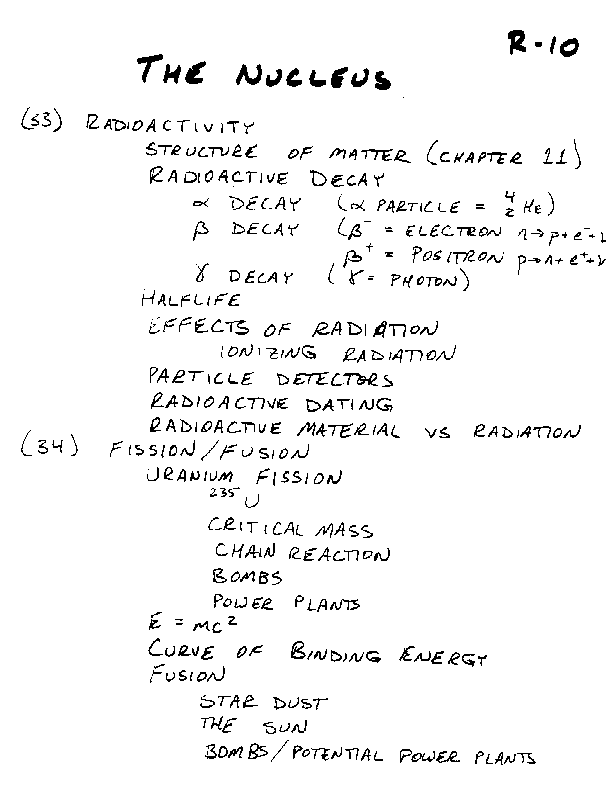 R-10
THE NUCLEUS
(33) RADIOACTIVITY
STRUCTURE OF MATTER (CHAPTER 11)
RADIOACTIVE DECAY
α DECAY (α PARTICLE = ⁴₂He)
β DECAY (β⁻ = ELECTRON n→p+e⁻+
β⁺ = POSITRON p→n+e⁺+ν
γ DECAY (γ = PHOTON)
HALFLIFE
EFFECTS OF RADIATION
IONIZING RADIATION
PARTICLE DETECTORS
RADIOACTIVE DATING
RADIOACTIVE MATERIAL VS RADIATION
(34) FISSION/FUSION
URANIUM FISSION
²³⁵U
CRITICAL MASS
CHAIN REACTION
BOMBS
POWER PLANTS
E = MC²
CURVE OF BINDING ENERGY
FUSION
STAR DUST
THE SUN
BOMBS/POTENTIAL POWER PLANTS